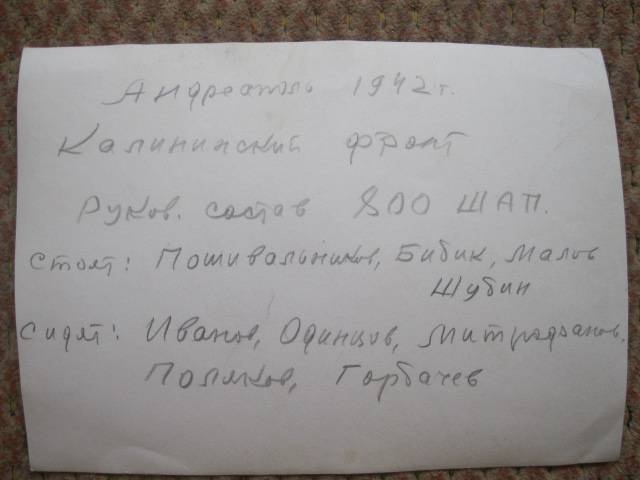 Андреаполь 1942 г.
Калининский фронт
Руков. состав 800 ШАП.
Стоят: Пошивальников, Бибик, Малов
Шубин
Сидят: Иванов, Одинцов, Митрофанов,
Поляков, Горбачев